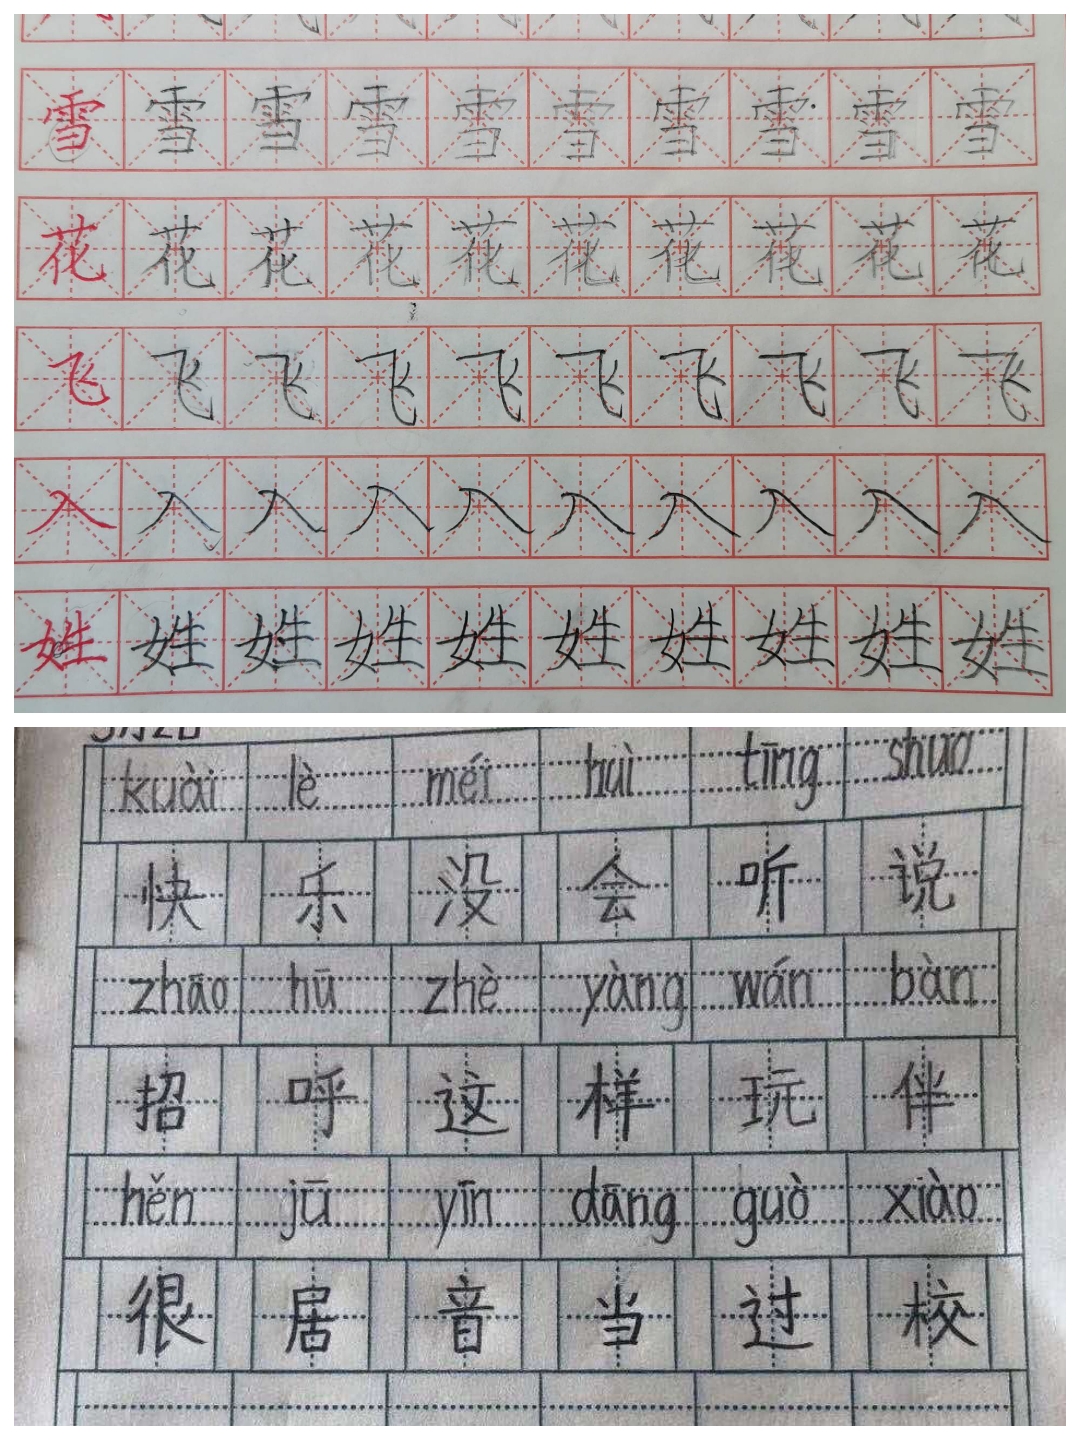 雪雪雪雪雪雪雪雪雪雪
花花花花花花花花花花
飞飞飞飞飞飞飞飞飞飞
入入入入入入入入入入
姓姓姓姓姓姓姓姓姓姓
kuài lè méi huì tīng shuo
快乐没会听说
zhāo hū zhè yàng wán bàn
招呼这样玩伴
hěn jū yīn dāng guò xiào
很居音当过校